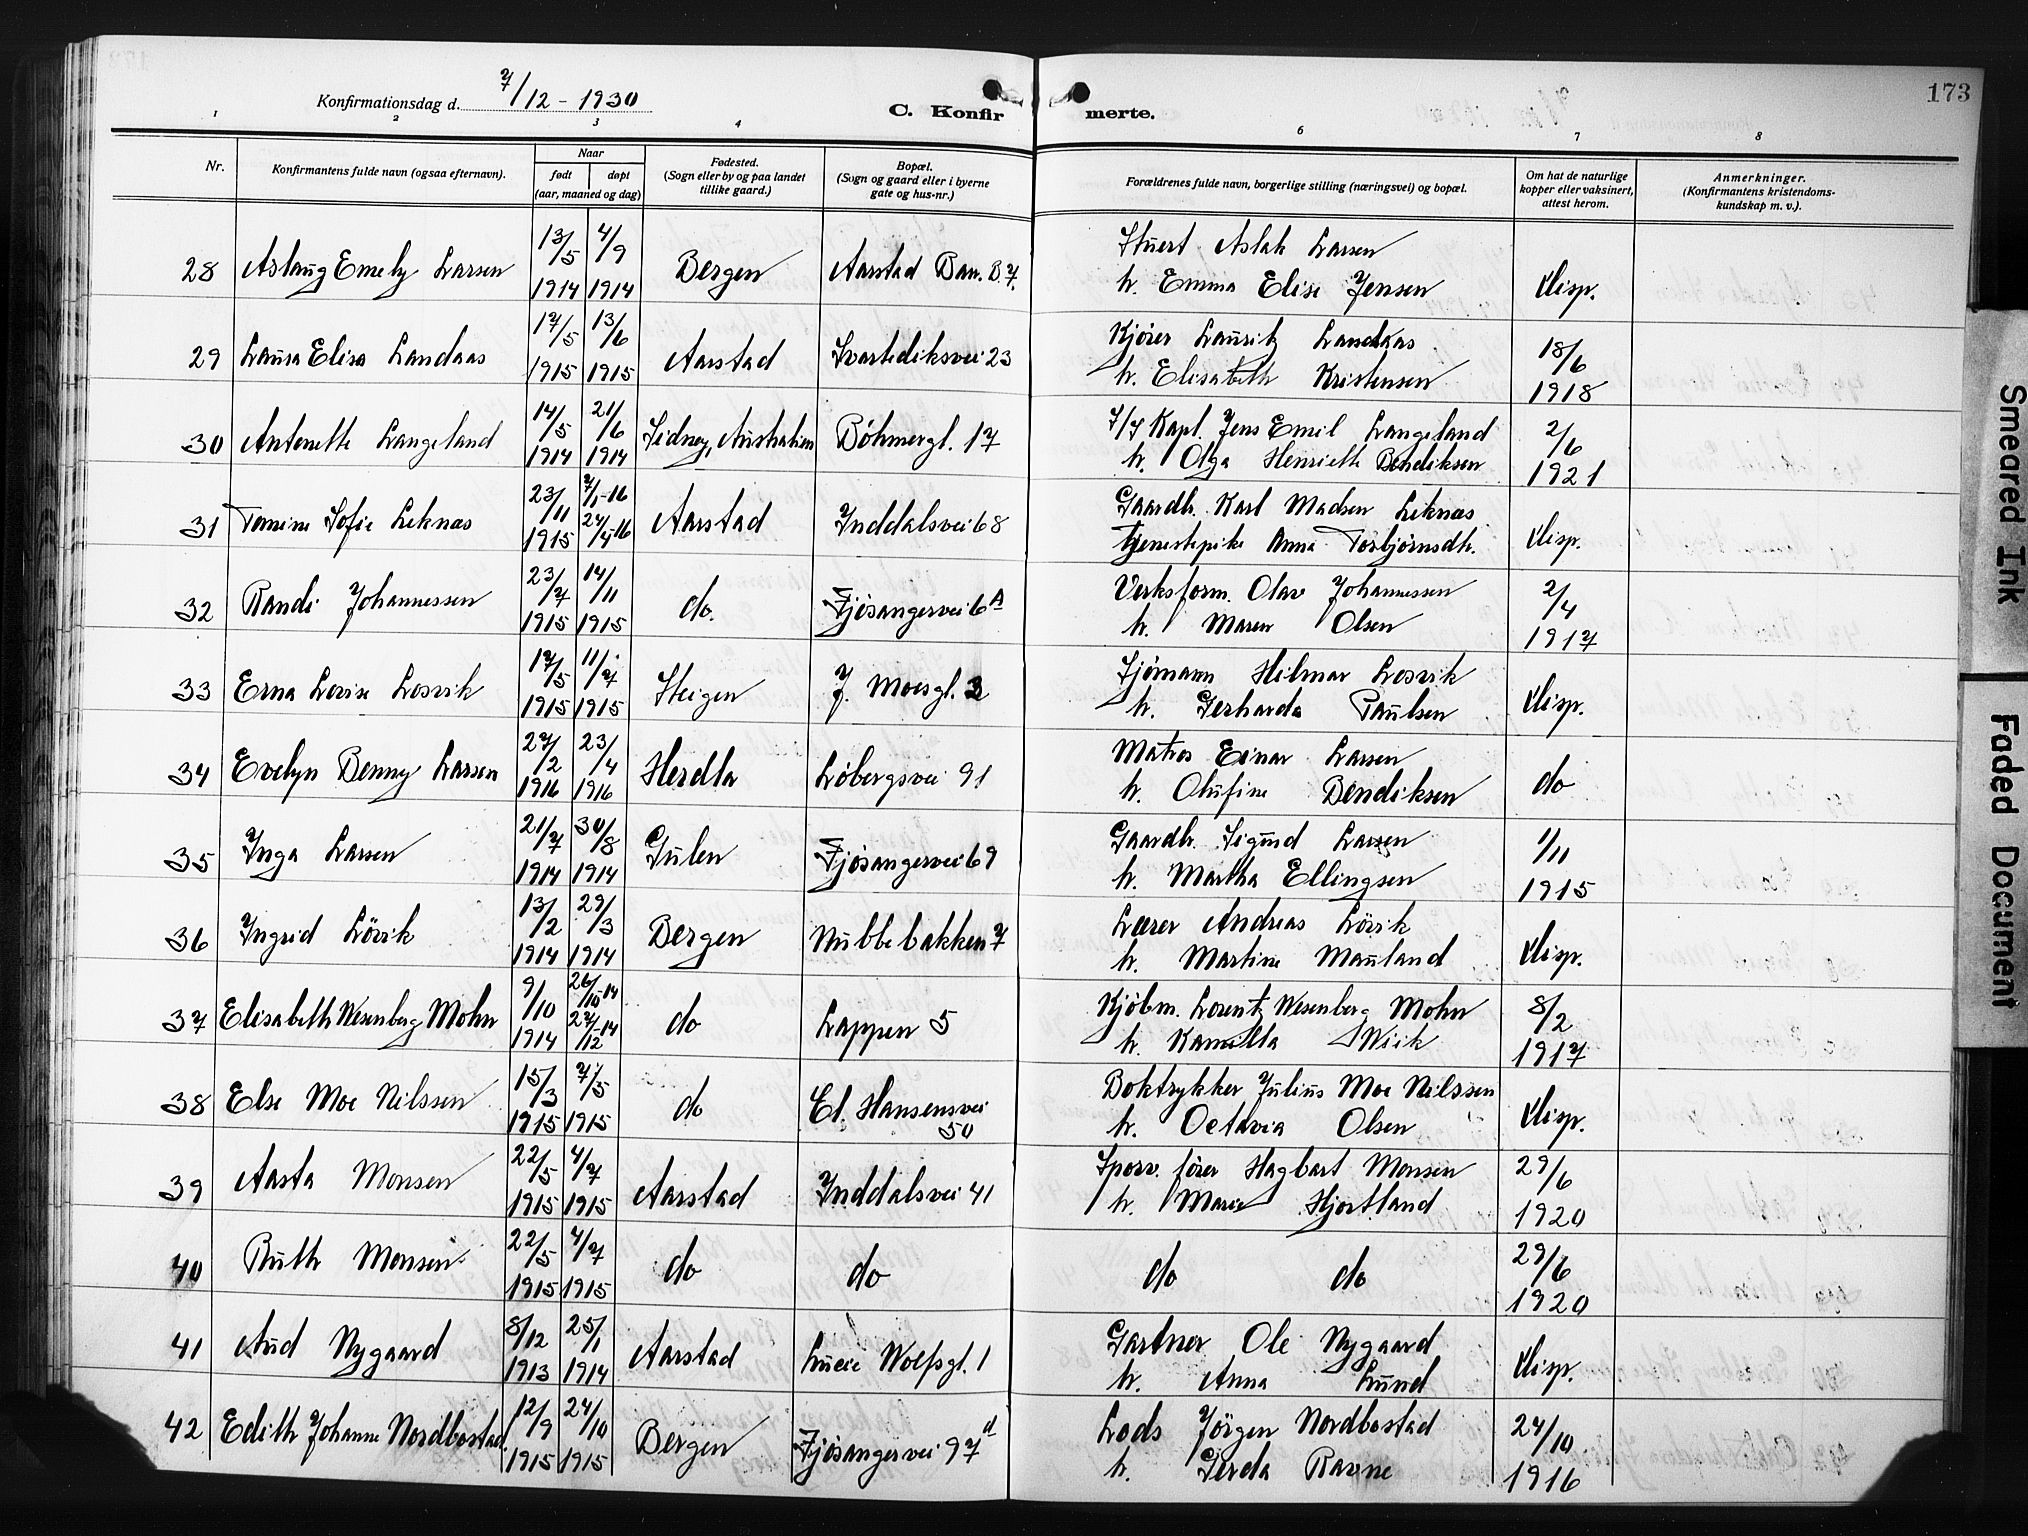 173
Konfirmationsdag d. 7/12 - 1930
C. Konfirmerte.
1 2 3 4 5 6 7 8
Nr. Konfirmantens fulde navn (ogsaa efternavn). Naar født døpt (aar, maaned og dag) Fødested. (Sogn eller by og paa landet tillike gaard.) Bopæl. (Sogn og gaard eller i byerne gate og hus-nr.) Forældrenes fulde navn, borgerlige stilling (næringsvei) og bopæl. Om hat de naturlige kopper eller vaksinert, attest herom. Anmerkninger. (Konfirmantens kristendomskundskap m. v.).
28 Aslaug Emely Larsen 13/5 1914 4/9 1914 Bergen Aarstad Bar. B. 7. Stuert Aslak Larsen
h. Emma Elise Jensen disp.
29 Laura Elisa Landaas 17/5 1915 13/6 1915 Aarstad Svartediksvei 23 Kjører Lauritz Landaas
h. Elisabeth Kristensen 18/6 1918
30 Antonette Langeland 14/5 1914 21/6 1914 Sidney, Australien Böhmergt. 17 F/F Kapt. Jens Emil Langeland
h. Olga Henriette Bendiksen 2/6 1921
31 Tomine Sofie Leknas 23/11 1915 7/1-16 24/4-16 Aarstad Inddalsvei 68 Gaardbr. Karl Madsen Leknas
tjenestepike Anna Torbjørnsdtr. disp.
32 Randi Johannessen 23/7 1915 14/11 1915 do. Fjøsangervei 6 A Verksform. Olav Johannessen
h. Maren Olsen 2/4 1917
33 Erna Lovise Losvik 17/5 1915 11/7 1915 Steigen J. Moesgt. 3 Sjømann Hilmar Losvik
h. Gerharda Paulsen disp.
34 Evelyn Benny Larsen 27/2 1916 23/4 1916 Herdla Løbergsvei 91 Matros Einar Larsen
h. Olufine Bendiksen do
35 Inga Larsen 21/7 1914 30/8 1914 Gulen Fjøsangervei 69 Gaardbr. Sigurd Larsen
h. Martha Ellingsen 1/11 1915
36 Ingrid Lövik 13/2 1914 29/3 1914 Bergen Nubbebakken 7 Lærer Andreas Lövik
h. Martine Mauland disp.
37 Elisabeth Wesenberg Mohn 9/10 1914 26/10-14 27/12-14 do Lappen 5 Kjøbm. Lorentz Wesenberg Mohn
h. Kamilla Wiik 8/2 1917
38 Else Moe Nilssen 15/3 1915 7/5 1915 do Cl. Hansensvei 50 Boktrykker Julius Moe Nilssen
h. Octavia Olsen disp.
39 Aasta Monsen 22/5 1915 4/7 1915 Aarstad Inddalsvei 41 Sporv. fører Hagbart Monsen
h. Marie Hjortland 29/6 1920
40 Ruth Monsen 22/5 1915 4/7 1915 do do do do 29/6 1920
41 Aud Nygaard 8/12 1913 25/1 1914 Aarstad Lucie Wolfsgt. 1 Gartner Ole Nygaard
h. Anna Lund disp.
42 Edith Johanne Nordbøstad 12/9 1915 24/10 1915 Bergen Fjøsangervei 97 d Lods Jörgen Nordbøstad
h. Gerda Ravne 24/10 1916
Smeared Ink
Faded Document